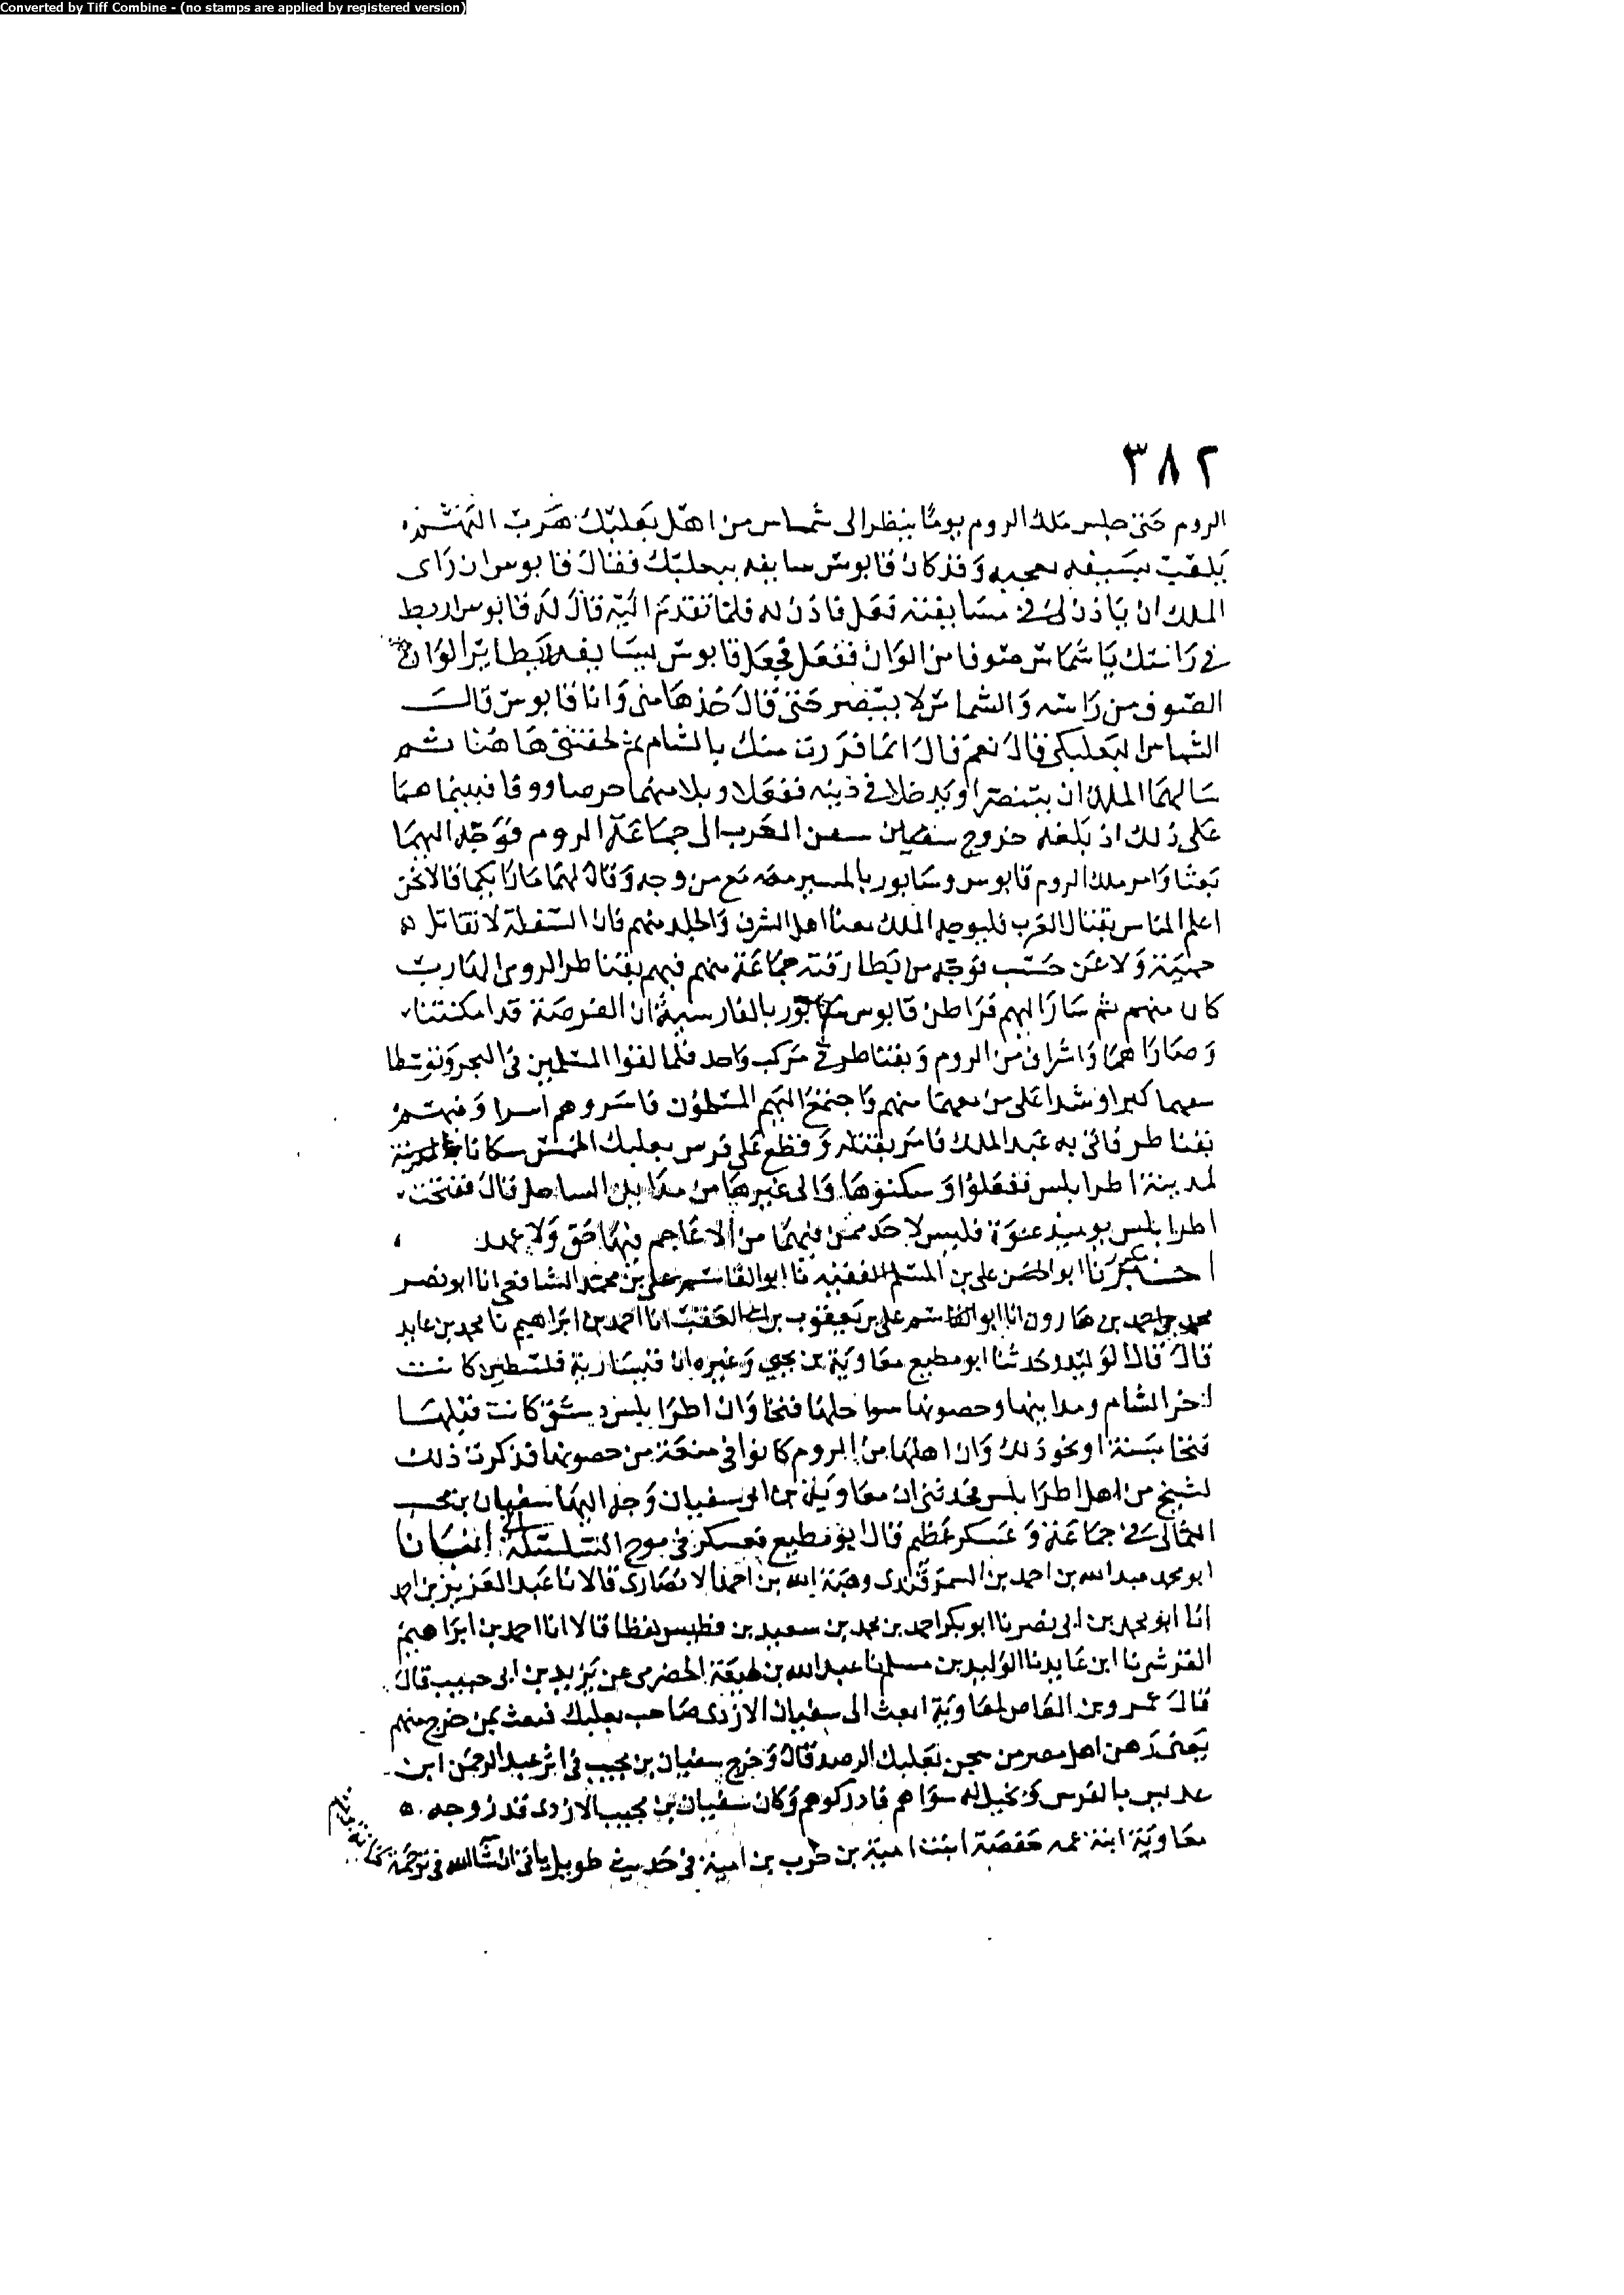 Converted by Tiff Combine - (no stamps are applied by registered version)
٣٨٢
الروم حتى جلس ملك الروم يوما ينظر الى شماس من اهل بعلبك هرب
يلعب بسيفه يعجبه وقد كان قابوس سابفه ببعلبك فقال قابوس ان راى
الملك ان ياذن لى فى مسايفته فعل فاذن له فلما تقدم اليه قال له قابوس اربط
فى راسك يا شماس صوفا من الوان ففعل فجعل قابوس يسايفه الوان
الصوف من راسه والشماس لا يبصر حتى قال خذها منى وانا قابوس قال
الشماس البعلبكى قال نعم قال انما فررت منك بالشام ثم لحقتنى هاهنا ثم
سالهما الملك ان يتنصرا ويدخلا فى دينه ففعلا وبلا منهما حرصا ووفا فبينما هما
على ذلك اذ بلغه خروج سفن العرب الى جماعة الروم فوجه اليهما
بعثا وامر ملك الروم قابوس وسابور بالمسير معه مع من وجه وقال لهما ما رايكما قالا نحن
اعلم الناس بقتال العرب فليوجه الملك معنا اهل الشرف والجلد منهم فان السفلة لا تقاتل
حمية ولا عن حسب فوجه من بطارقته جماعة منهم فيهم بقناطر الرومى الهارب
كان منهم ثم سارا اليهم فراطن قابوس سابور بالفارسية ان الفرصة قد امكنتنا
وصارا هما واشراف من الروم وبقناطر فى مركب واحد فلما لقوا المسلمين فى البحر وتوسطا
كبرا وشدا على من معهما منهم واجتمع اليهم المسلمون فاسروهم اسرا وفيهم
بقناطر فاتى به عبد الملك فامر بقتله وقطع على فرس بعلبك الخمس سكانا
لمدينة اطرابلس ففعلوا وسكنوها والى غيرها من مداين الساحل قال ففتحت
اطرابلس يوميذ عنوة فليس لاحد ممن فيها من الاعاجم فيها حق ولا عهد
اخبرنا ابو الحسن على بن المسلم الفقيه نا ابو القاسم على بن محمد الشافعى انا ابو نصر
محمد بن احمد بن هارون انا ابو القاسم على بن يعقوب بن ابى العقب انا احمد بن ابراهيم نا محمد بن عايد
قال قال الوليد وحدثنا ابو مطيع معاوية بن يحيى وغيره ان قيسارية فلسطين كانت
اخر الشام ومداينها وحصونها سواحلها فتحا وان اطرابلس دمشق كانت قبلها
فتحا بسنة او نحو ذلك وان اهلها من الروم كانوا فى منعة من حصونها فذكرت ذلك
لشيخ من اهل اطرابلس فحدثنى ان معاوية بن ابى سفيان وجه اليها سفيان بن مجيب
الثمالى فى جماعة وعسكر عظيم قال ابو مطيع فعسكر فى مرج السلسلة انبانا
ابو محمد عبد الله بن احمد بن السمرقندى وهبة الله بن احمد الانصارى قالا نا عبد العزيز بن احمد
انا ابو محمد بن ابى نصر نا ابو بكر احمد بن محمد بن سعيد بن فطيس لفظا قالا انا احمد بن ابراهيم
القرشى نا ابن عايد نا الوليد بن مسلم نا عبد الله بن لهيعة الحضرمى عن يزيد بن ابى حبيب قال
قال عمرو بن العاص لمعاوية ابعث الى سفيان الازدى صاحب بعلبك فبعث بمن خرج منهم
يعنى رهن اهل مصر من سجن بعلبك الرصد قال وخرج سفيان بن مجيب فى اثر عبد الرحمن ابن
عديس بالفرس سواهم فادركوهم وكان سفيان بن مجيب الازدى قد زوجه
معاوية ابنة عمه حفصة ابنت امية بن حرب بن امية فى حديث طويل ياتى ان شا الله فى ترجمة كنانة